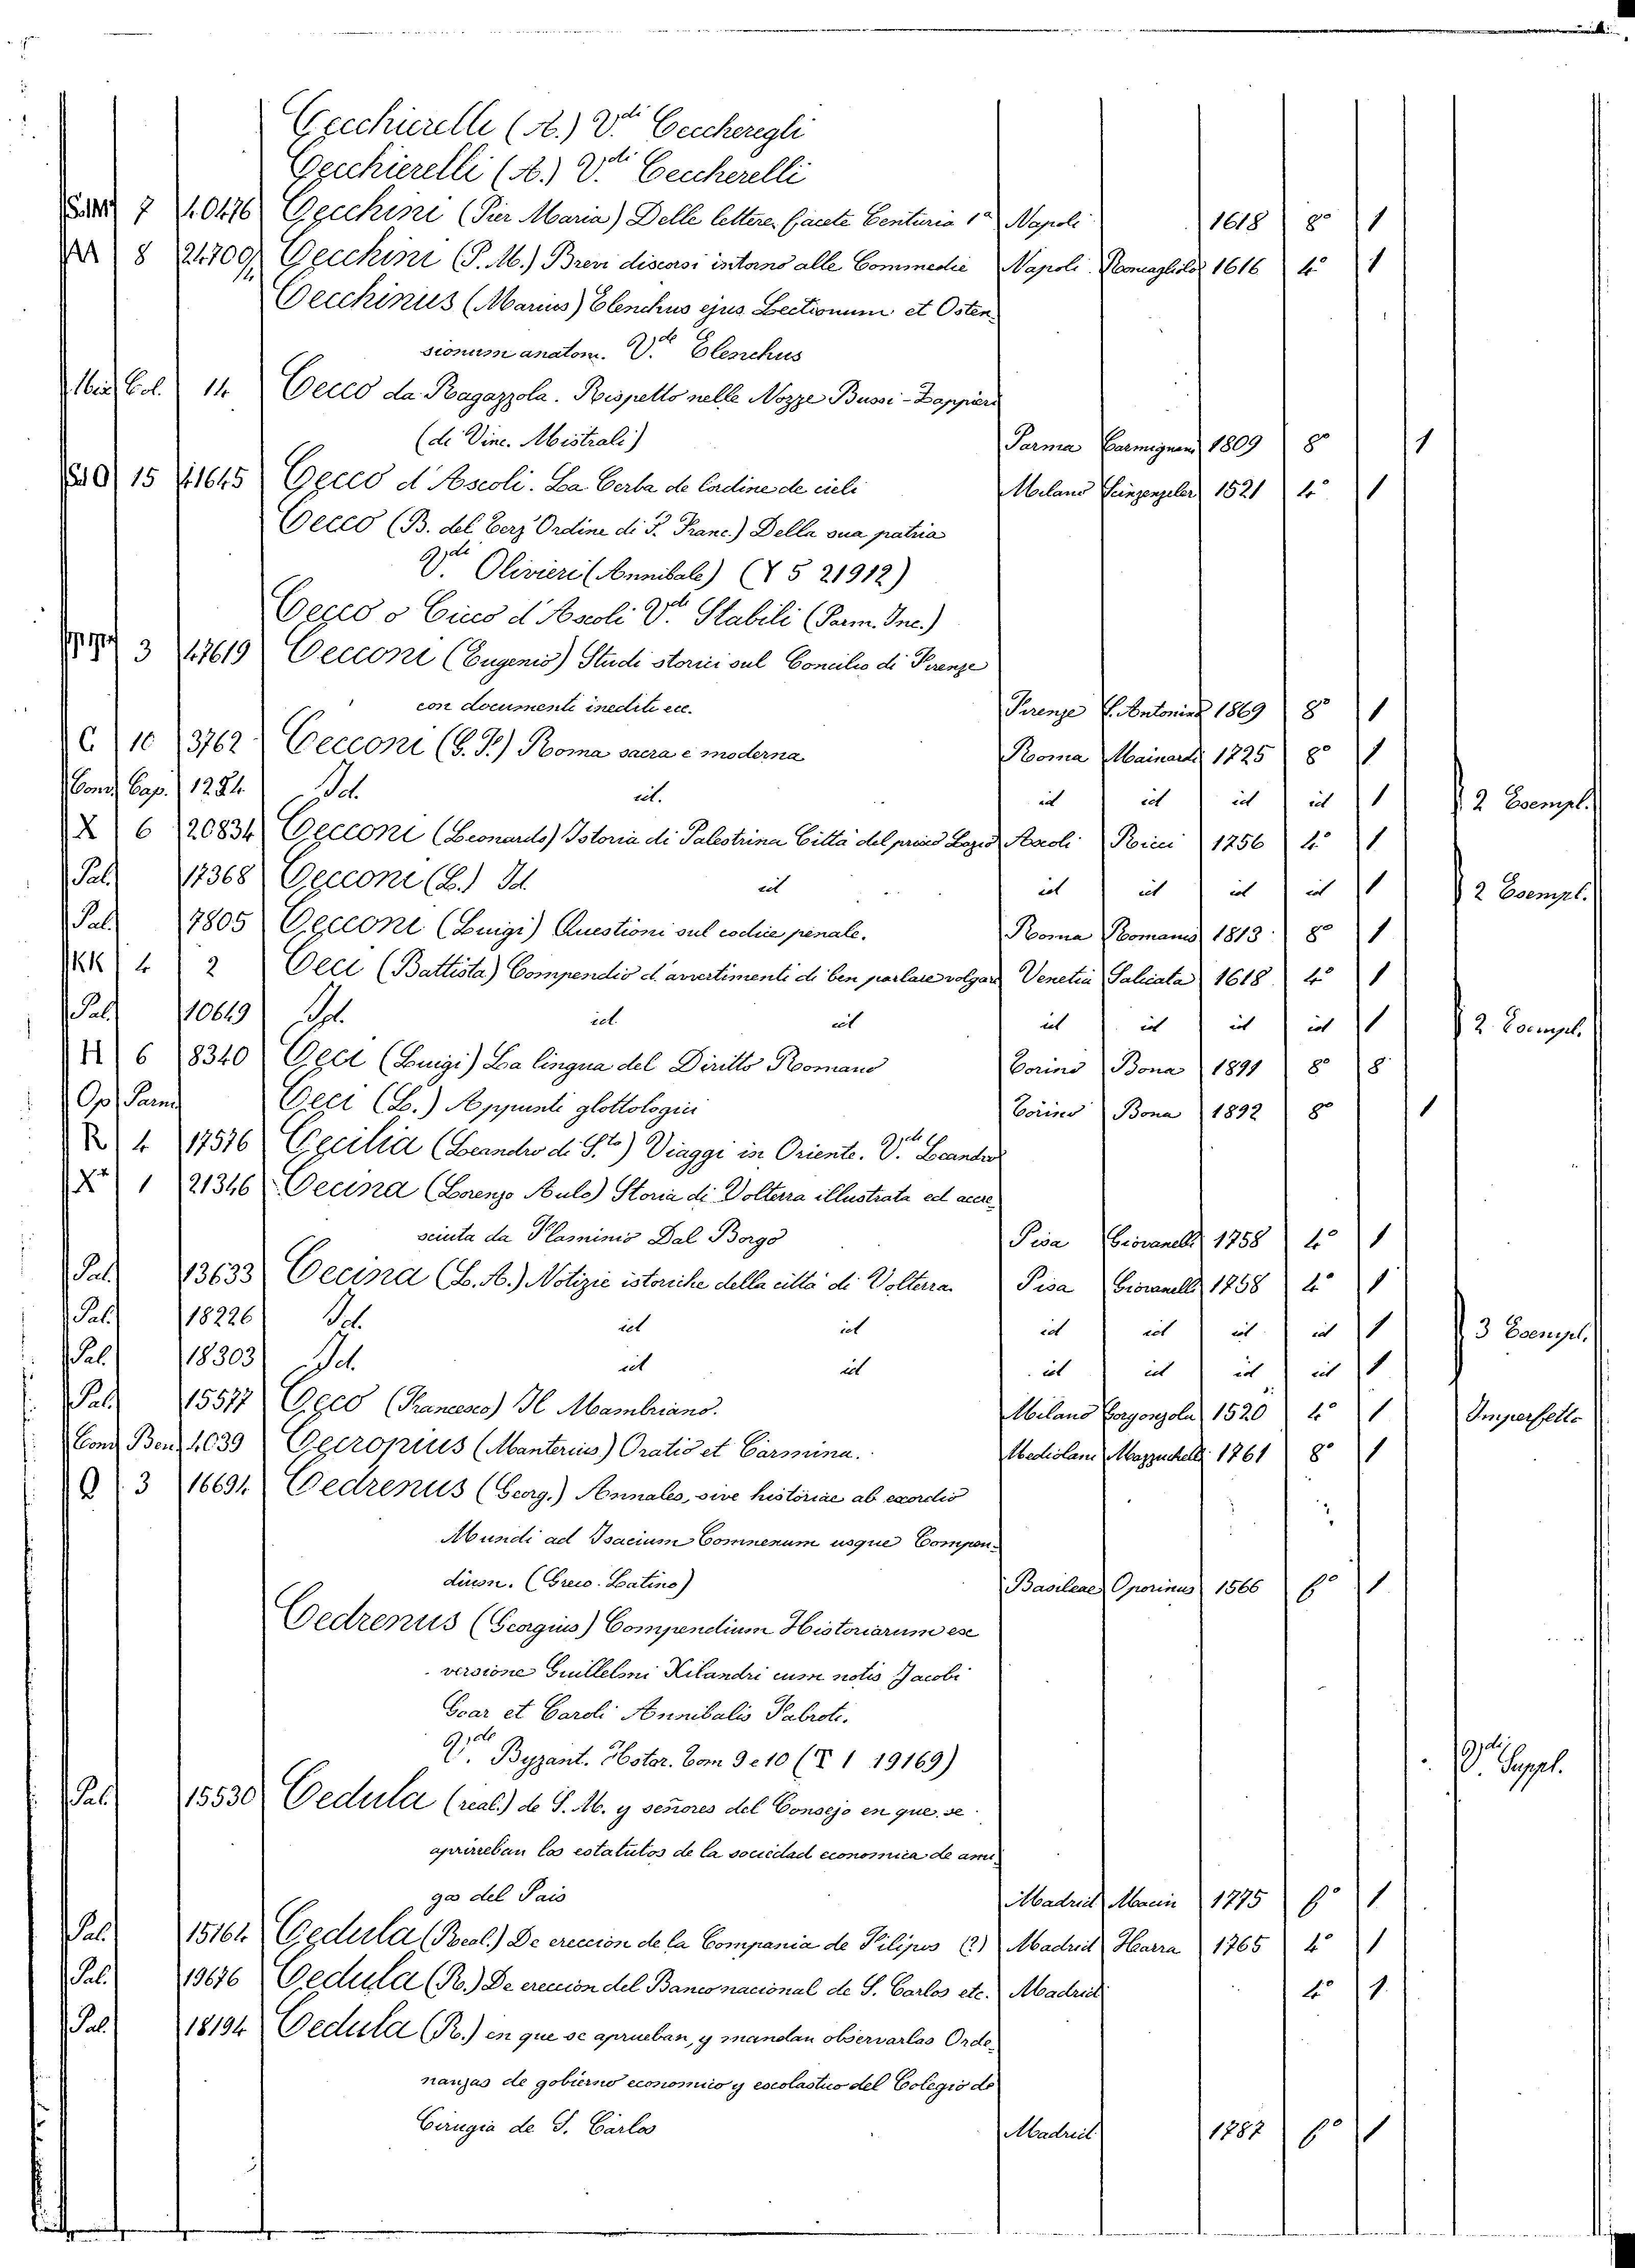 Cecchierelle (A.) V.di Ceccheregli
Cecchierelli (A.) V.di Ceccherelli
7 40476 Cecchini (Pier Maria) Delle lettere facete Centuria 1a Napoli 1618 8o 1
AA 8 24709/1 Cecchini (P. M.) Brevi discorsi intorno alle Commedie Napoli Roncagliolo 1616 4o 1
Cecchinus (Marius) Elenchus ejus Lectionum et Osten-
sionum anatom. V.de Elenchus
Misc. Col. 14 Cecco da Ragazzola. Rispetto nelle Nozze Bussi-Zappieri
(di Vinc. Mistrali) Parma Carmignani 1809 8o 1
15 41645 Cecco d'Ascoli. La Cerba de lordine de cieli Milano Scinzenzeler 1521 4o 1
Cecco (B. del Terz'Ordine di S. Franc.) Della sua patria
V.di Olivieri (Annibale) (Y 5 21912)
Cecco o Cicco d'Ascoli V.di Stabili (Parm. Inc.)
3 47619 Cecconi (Eugenio) Studi storici sul Concilio di Firenze
con documenti inediti ecc. Firenze S. Antonino 1869 8o 1
C 10 3762 Cecconi (G. F.) Roma sacra e moderna Roma Mainardi 1725 8o 1
Cons. Cap. 1284 Id. id. id id id id 1 2 Esempl.
X 6 20834 Cecconi (Leonardo) Istoria di Palestrina Città del prisco Lazio Ascoli Ricci 1756 4o 1
Pal. 17368 Cecconi (L.) Id. id id id id id 1 2 Esempl.
Pal. 7805 Cecconi (Luigi) Questioni sul codice penale. Roma Romanis 1813 8o 1
KK 4 2 Ceci (Battista) Compendio d'avvertimenti di ben parlare volgare Venetia Salicata 1618 4o 1
Pal. 10649 Id. id. id id id id id 1 2 Esempl.
H 6 8340 Ceci (Luigi) La lingua del Diritto Romano Torino Bona 1891 8o 8
Op. Parm. Ceci (L.) Appunti glottologici Torino Bona 1892 8o 1
R 4 17576 Cecilia (Leandro di S.ta) Viaggi in Oriente. V.di Leandro
1 21346 Cecina (Lorenzo Aulo) Storia di Volterra illustrata ed accre-
sciuta da Flaminio Dal Borgo Pisa Giovanelli 1758 4o 1
Pal. 13633 Cecina (L. A.) Notizie istoriche della città di Volterra Pisa Giovanelli 1758 4o 1
Pal. 18226 Id. id id id id id id 1 3 Esempl.
Pal. 18303 Id. id id id id id id 1
Pal. 15577 Ceco (Francesco) Il Mambriano. Milano Gorgonzola 1520 4o 1 Imperfetto
Cons. Ben. 4039 Cecropius (Manterius) Oratio et Carmina. Mediolani Mazzuchelli 1761 8o 1
Q 3 16694 Cedrenus (Georg.) Annales, sive historiae ab exordio
Mundi ad Isacium Comnenum usque Compen-
dium. (Greco-Latino) Basileae Oporinus 1566 fo 1
Cedrenus (Georgius) Compendium Historiarum ex
versione Guillelmi Xilandri cum notis Jacobi
Goar et Caroli Annibalis Fabroti.
V.de Byzant. Hstor. Tom 9 e 10 (T 1 19169) V.di Suppl.
Pal. 15530 Cedula (real.) de S. M. y señores del Consejo en que se
aprrueban los estatutos de la sociedad economica de ami-
gos del Pais Madrid 1775 fo 1
Pal. 15164 Cedula (Real.) De ereccion de la Compania de Filipos (?) Madrid Ibarra 1765 4o 1
Pal. 19676 Cedula (R.) De ereccion del Banco nacional de S. Carlos etc. Madrid 4o 1
Pal. 18194 Cedula (R.) en que se aprueban, y mandan observarlas Orde-
nanzas de gobierno economico y escolastico del Colegio de
Cirugia de S. Carlos Madrid 1787 fo 1